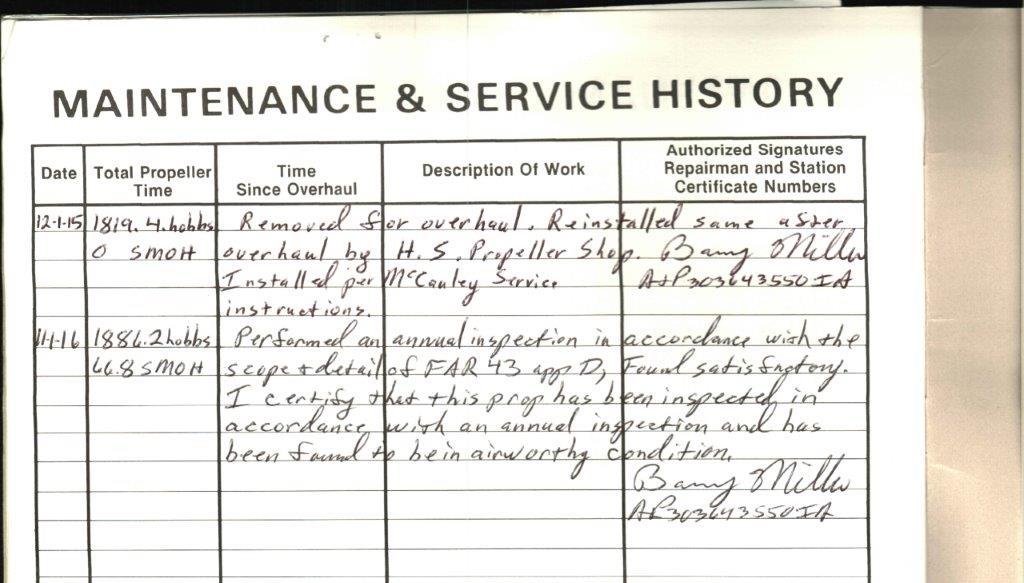 MAINTENANCE & SERVICE HISTORY
Date
Total Propeller
Time
Time
Since Overhaul
Description Of Work
Authorized Signatures
Repairman and Station
Certificate Numbers
12-1-15 1819.4 hobbs Removed for overhaul. Reinstalled same after
0 SMOH overhaul by H.S. Propeller Shop. Barry Miller
Installed per McCauley Service A+P303643550IA
instructions.
11-1-16 1886.2 hobbs Performed an annual inspection in accordance with the
66.8 SMOH scope + detail of FAR 43 app D, Found satisfactory.
I certify that this prop has been inspected in
accordance with an annual inspection and has
been found to be in airworthy condition.
Barry Miller
AP303643550IA